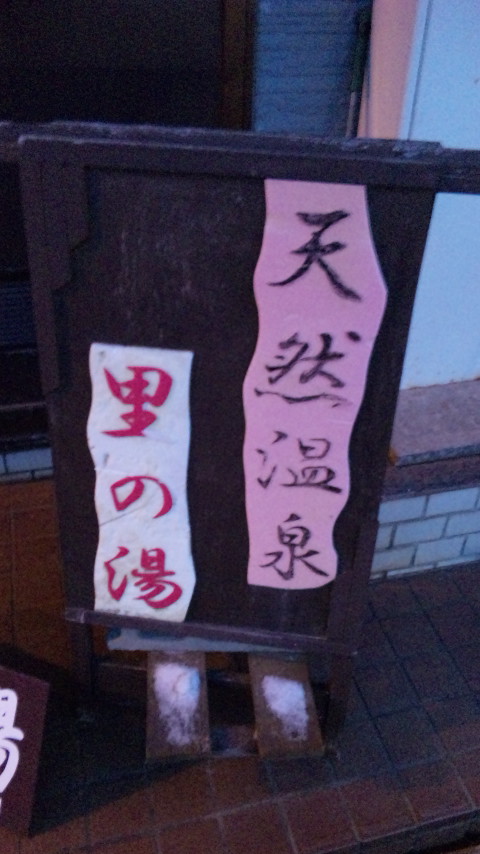 天然温泉
里の湯
湯